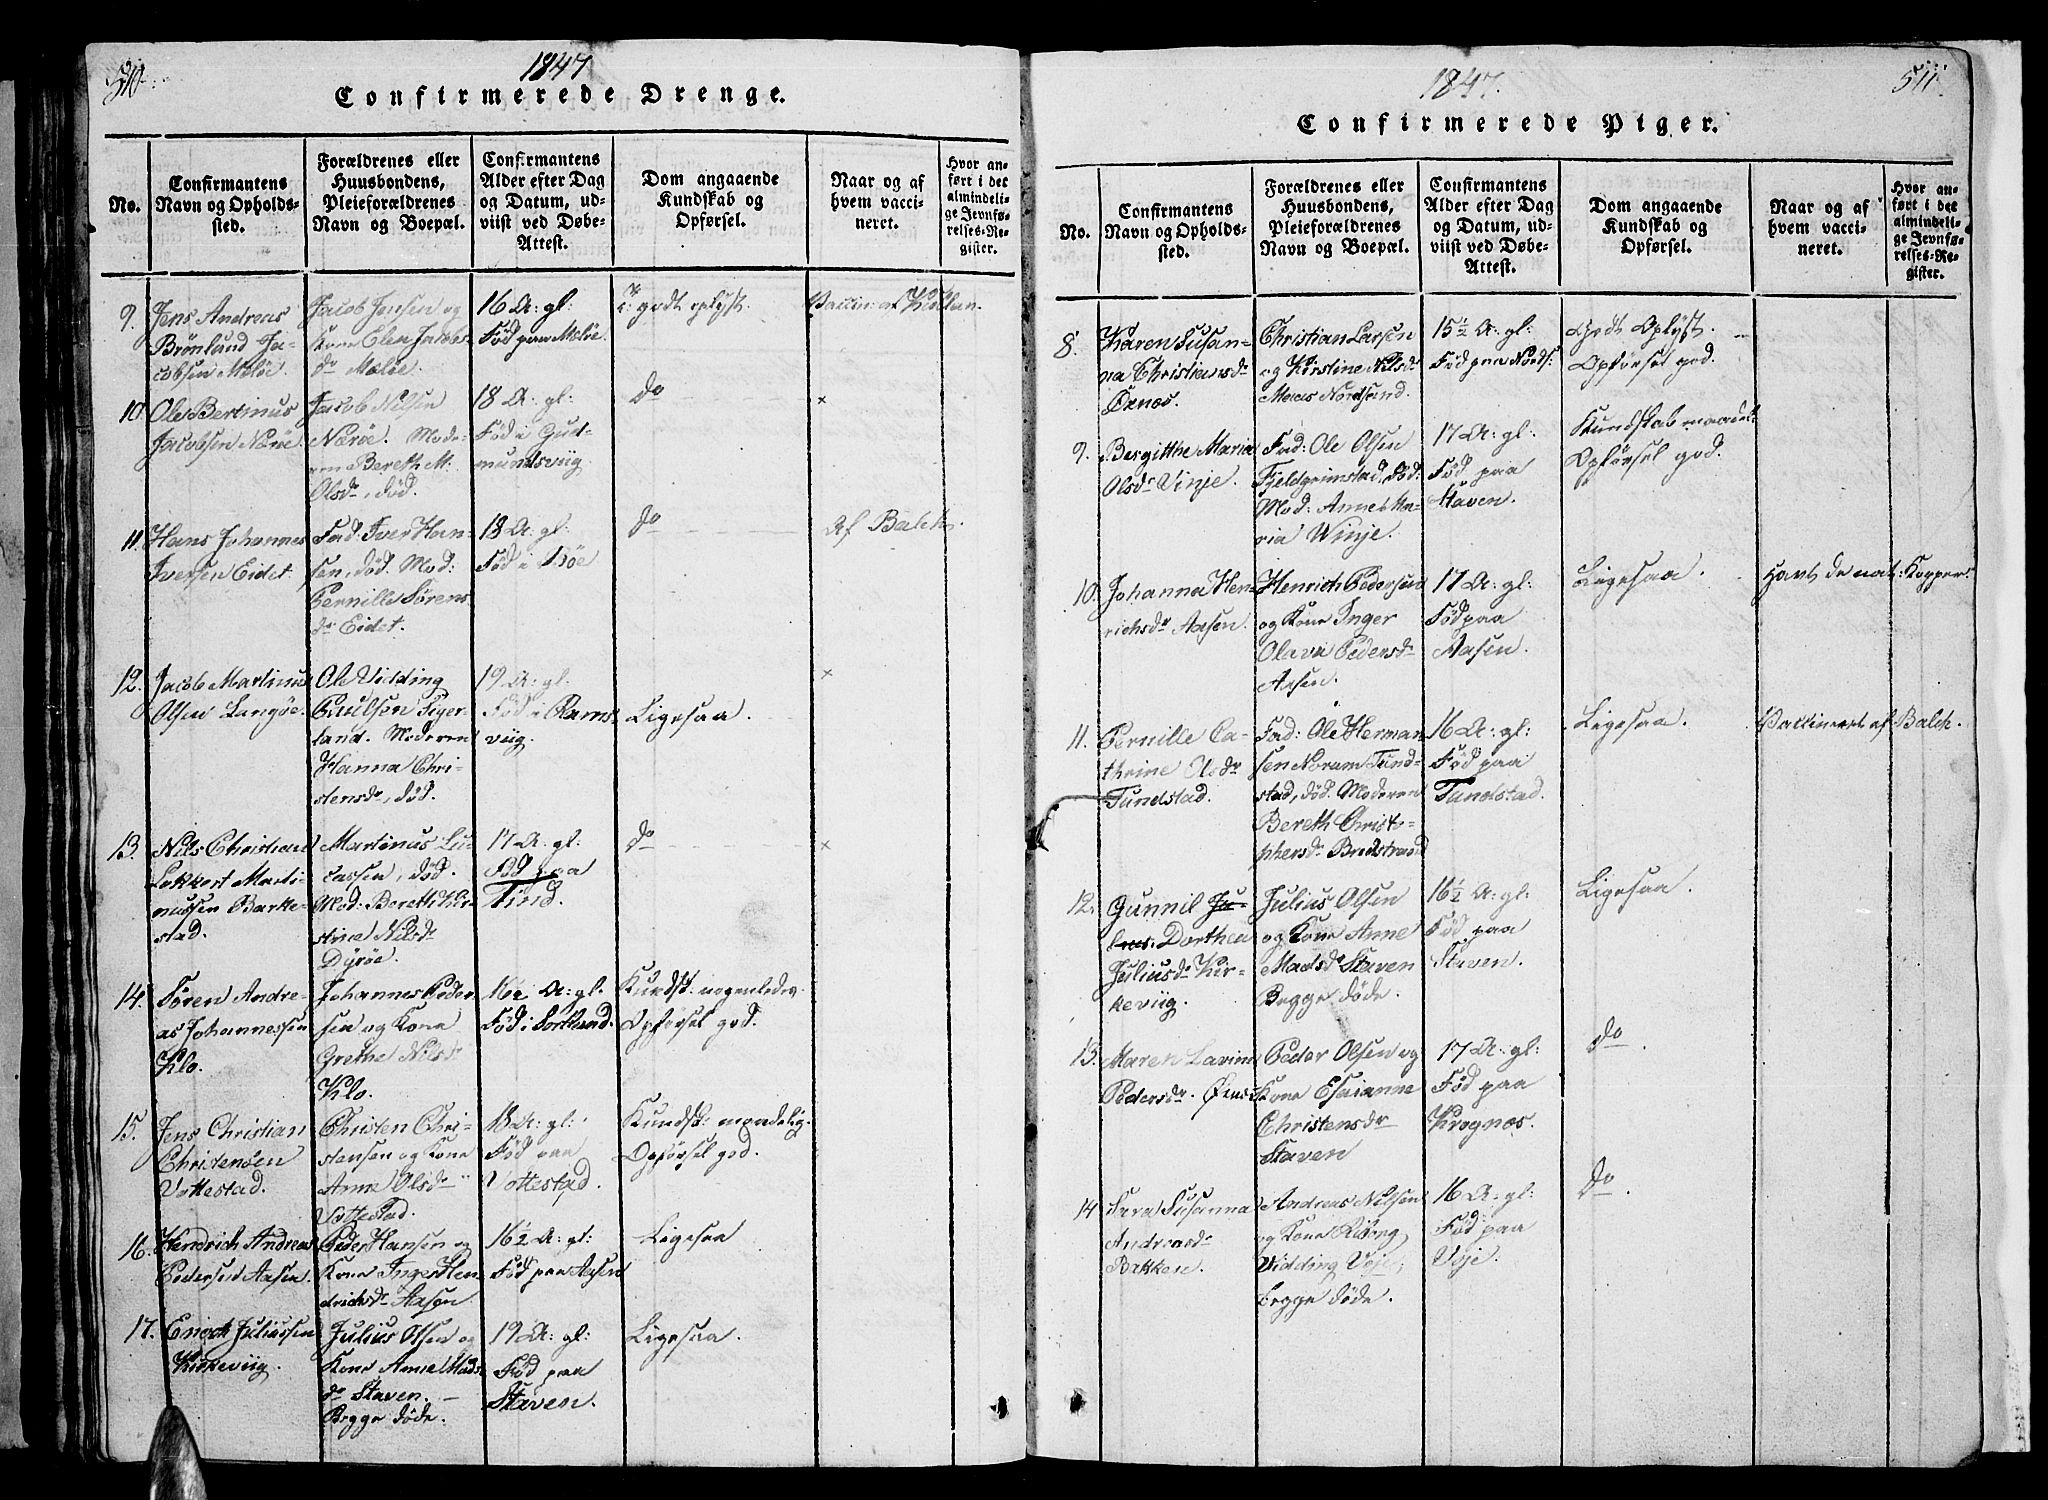 510.
1847
Confirmerede Drenge.
No.
Confirmantens
Navn og Opholds-
sted.
Forældrenes eller
Huusbondens,
Pleieforældrenes
Navn og Boepæl.
Confirmantens
Alder efter Dag
og Datum, ud-
viist ved Døbe-
Attest.
Dom angaaende
Kundskab og
Opførsel.
Naar og af
hvem vacci-
neret.
Hvor an-
ført i det
almindeli-
ge Jevnfø-
relses-Re-
gister.
9.
Jens Andreas
Brönlund Ja-
cobsen Meløe
Jacob Jensen og
Kone Elen Jacobs
dr Meløe.
16 A: gl:
Fød paa Meløe.
godt oplyst.
Vaccin: af Kiellan.
10.
Ole Bertinus
Jacobsen Nærøe.
Jacob Nilsen
Nærøe. Mode-
ren Bereth M:
Olsdr, död.
18 A: gl:
Fød i Gud-
mundsviig.
do
×
11.
Hans Johannes
Iversen Eidet
Fad: Iver Han-
sen, död. Mod:
Pernille Sörens
dr Eidet.
18 A: gl:
Fød i Böe
do
Af Balch.
12.
Jacob Martinus
Olsen Langöe.
Ole Vidding
Paulsen Tiger-
land. Moderen
Hanna Chri-
stensdr, död.
19 A: gl:
Fød i Rams-
viig.
Ligesaa.
×
13.
Nils Christian
Lokkert Marti-
nussen Barke-
stad.
Martinus Lu-
cassen, död.
Mod: Bereth Kir-
stine Nilsdr
Dyröe.
17 A: gl:
Fød paa
Tind.
do
×
14.
Sören Andre-
as Johannessen
Klo.
Johannes Peder
sen og Kone
Grethe Nilsdr
Klo.
16½ A: gl.
Fød i Sortland.
Kundsk: nogenledes.
Opförsel god.
15.
Jens Christian
Christensen
Vottestad.
Christen Chri-
stensen og Kone
Anne Olsdr
Vottestad.
18 A: gl:
Fød paa
Vottestad.
Kundsk: maadelig.
Opförsel god.
16.
Hendrich Andreas
Pedersen Aasen.
Peder Hansen og
Kone Inger Hen-
drichsdr Aasen.
16½ A: gl:
Fød paa Aasen
Ligesaa
17.
Enoch Juliussen
Kirkeviig.
Julius Olsen og
Kone Anne Mads
dr Staven. –
Begge döde.
19 A: gl:
Fød paa
Staven.
Ligesaa.
511.
1847.
Confirmerede Piger.
No.
Confirmantens
Navn og Opholds-
sted.
Forældrenes eller
Huusbondens,
Pleieforældrenes
Navn og Boepæl.
Confirmantens
Alder efter Dag
og Datum, ud-
viist ved Døbe-
Attest.
Dom angaaende
Kundskab og
Opførsel.
Naar og af
hvem vacci-
neret.
Hvor an-
ført i det
almindeli-
ge Jevnfø-
relses-Re-
gister.
8.
Karen Susan-
na Christiansdr
Öxnæs.
Christian Larsen
og Kirstine Nilsdr
Maas Nordsand.
15½ A: gl:
Fød paa Nords:
Godt Oplyst.
Opförsel god.
9.
Bergitthe Maria
Olsdr Vinje.
Fad: Ole Olsen
Fjeldgrimstad, död:
Mod: Anne Ma-
ria Winje.
17 A: gl:
Fød paa
Staven.
Kundskab maadel:
Opförsel god.
10.
Johanna Hen-
richsdr Aasen.
Henrich Pedersen
og Kone Inger
Olava Pedersdr
Aasen.
17 A: gl:
Fød paa
Aasen.
Ligesaa.
Havt de nat: Kopper
11.
Pernille Ca-
thrine Olsdr
Tundstad.
Fad: Ole Herman
sen Noram Tund-
stad, död. Moderen
Bereth Christo-
phersdr Bredstrand
16 A: gl:
Fød paa
Tundstad.
Ligesaa.
Vaccineret af Balch.
12.
Gunnil Ju-
lius: Dorthea
Juliusdr Kir-
keviig.
Julius Olsen
og Kone Anne
Madsdr Staven
Begge döde.
16½ A: gl:
Fød paa
Staven.
Ligesaa.
13.
Maren Lavina
Pedersdr.
Peder Olsen og
Kone Esaianne
Christensdr
Staven
17 A: gl:
Fød paa
Krognæs.
do
14
Sara Susanna
Andreasdr
Bakken.
Andreas Nilsen
og Kone
Vidding Voje,
begge döde.
16 A: gl:
Fød paa
Voje.
do.